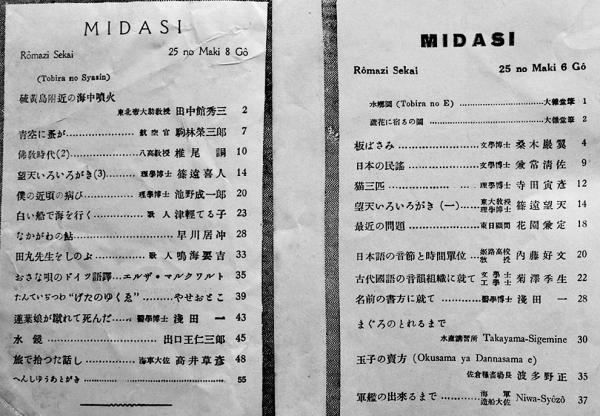 MIDASI
Rômazi Sekai 25 no Maki 8 Gô
(Tobira no Syasin)
硫黄島附近の海中噴火
東北帝大助教授 田中館秀三 2
青空に蚤が 航空官 駒林榮三郎 7
佛敎時代(2) 八高教授 椎尾詗 10
望天いろいろがき(3) 理學博士 篠遠喜人 14
僕の近頃の病び 理學博士 池野成一郎 20
白い船で海を行く 歌人 津輕てる子 23
なかがわの鮎 早川居冲 28
田丸先生をしのぶ 歌人 鳴海要吉 33
おさな唄のドイツ語譯 エルザ・マルクワルト 35
たんていぢつわ “げたのゆくゑ” やせおとこ 39
蓮葉娘が蹴れて死んだ 醫學博士 淺田一 43
水鏡 出口王仁三郎 45
旅で拾つた話し 海軍大佐 高井草彦 48
へんしゆうあとがき 55
MIDASI
Rômazi Sekai 25 no Maki 6 Gô
水郷圖 (Tobira no E) 大雅堂筆 1
蘆花に宿るの圖 大雅堂筆 2
板ばさみ 文學博士 桑木嚴翼 4
日本の民謠 文學博士 兼常清佐 9
猫三匹 理學博士 寺田寅彦 12
望天いろいろがき (一) 東大敎授 理學博士 篠遠望天 14
最近の問題 東日顧問 花園兼定 18
日本語の音節と時間單位 姫路高校教授 内藤好文 20
古代國語の音韻組織に就て 文學士 工學士 菊澤季生 22
名前の書方に就て 醫學博士 淺田一 28
まぐろのとれるまで
水産講習所 Takayama-Sigemine 30
玉子の賣方 (Okusama ya Dannasama e)
佐倉種畜場長 波多野正 35
軍艦の出來るまで 海軍造船大佐 Niwa-Syôzô 37